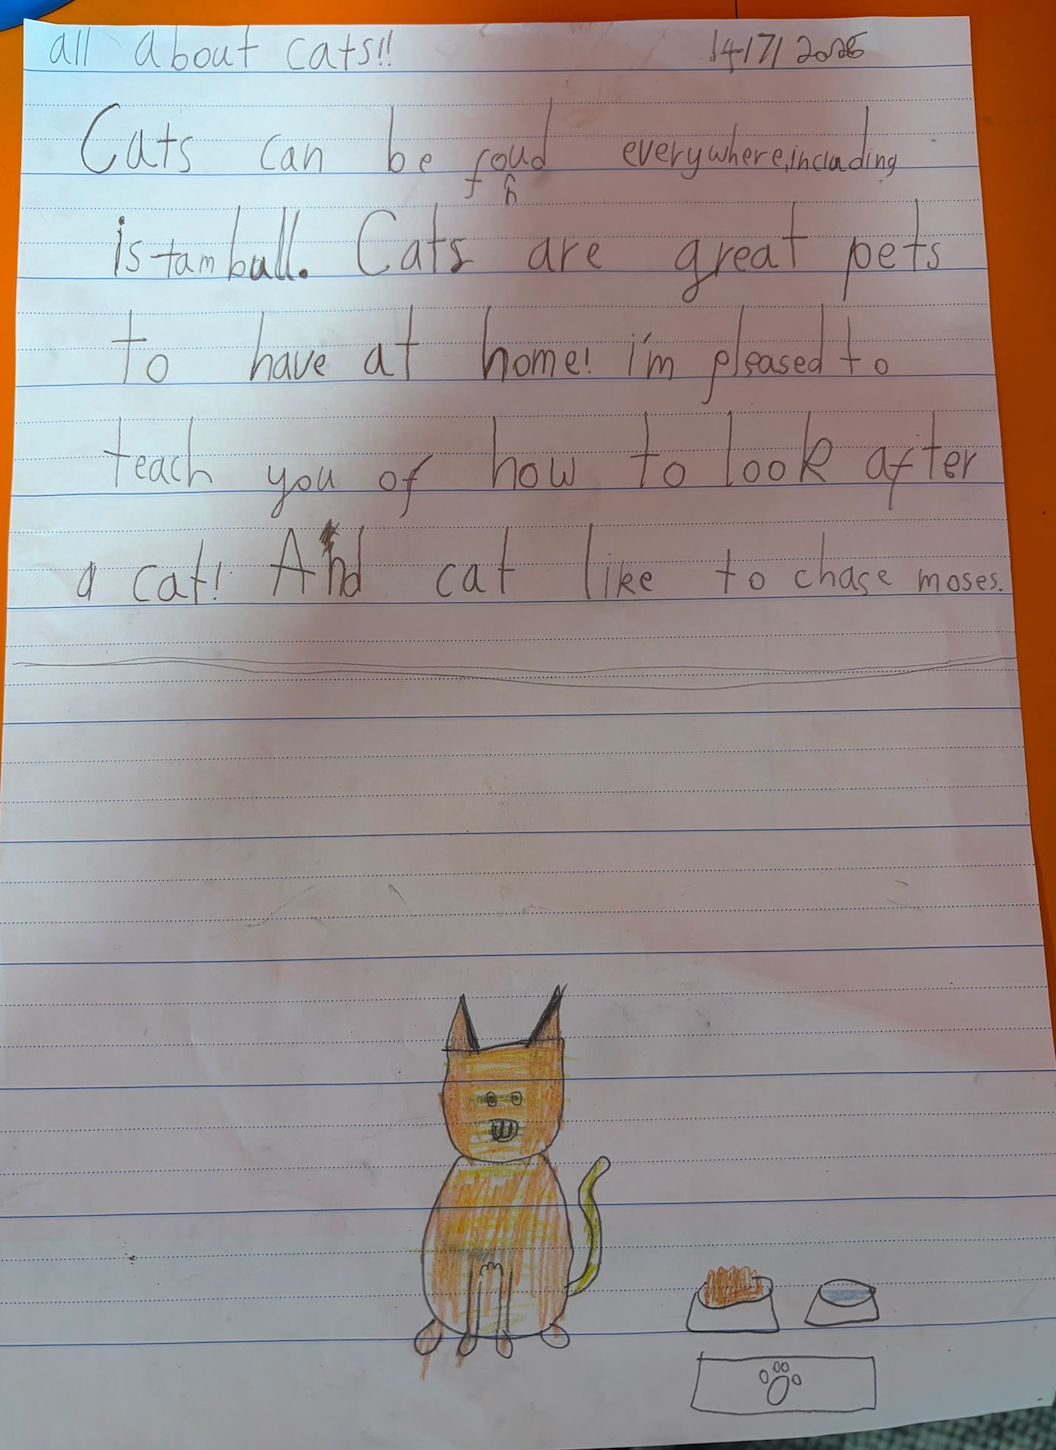 all about cats!! 14/7/2025
Cats can be found everywhere,including
istamball. Cats are great pets
to have at home! i'm pleased to
teach you of how to look after
a cat! And cat like to chase moses.